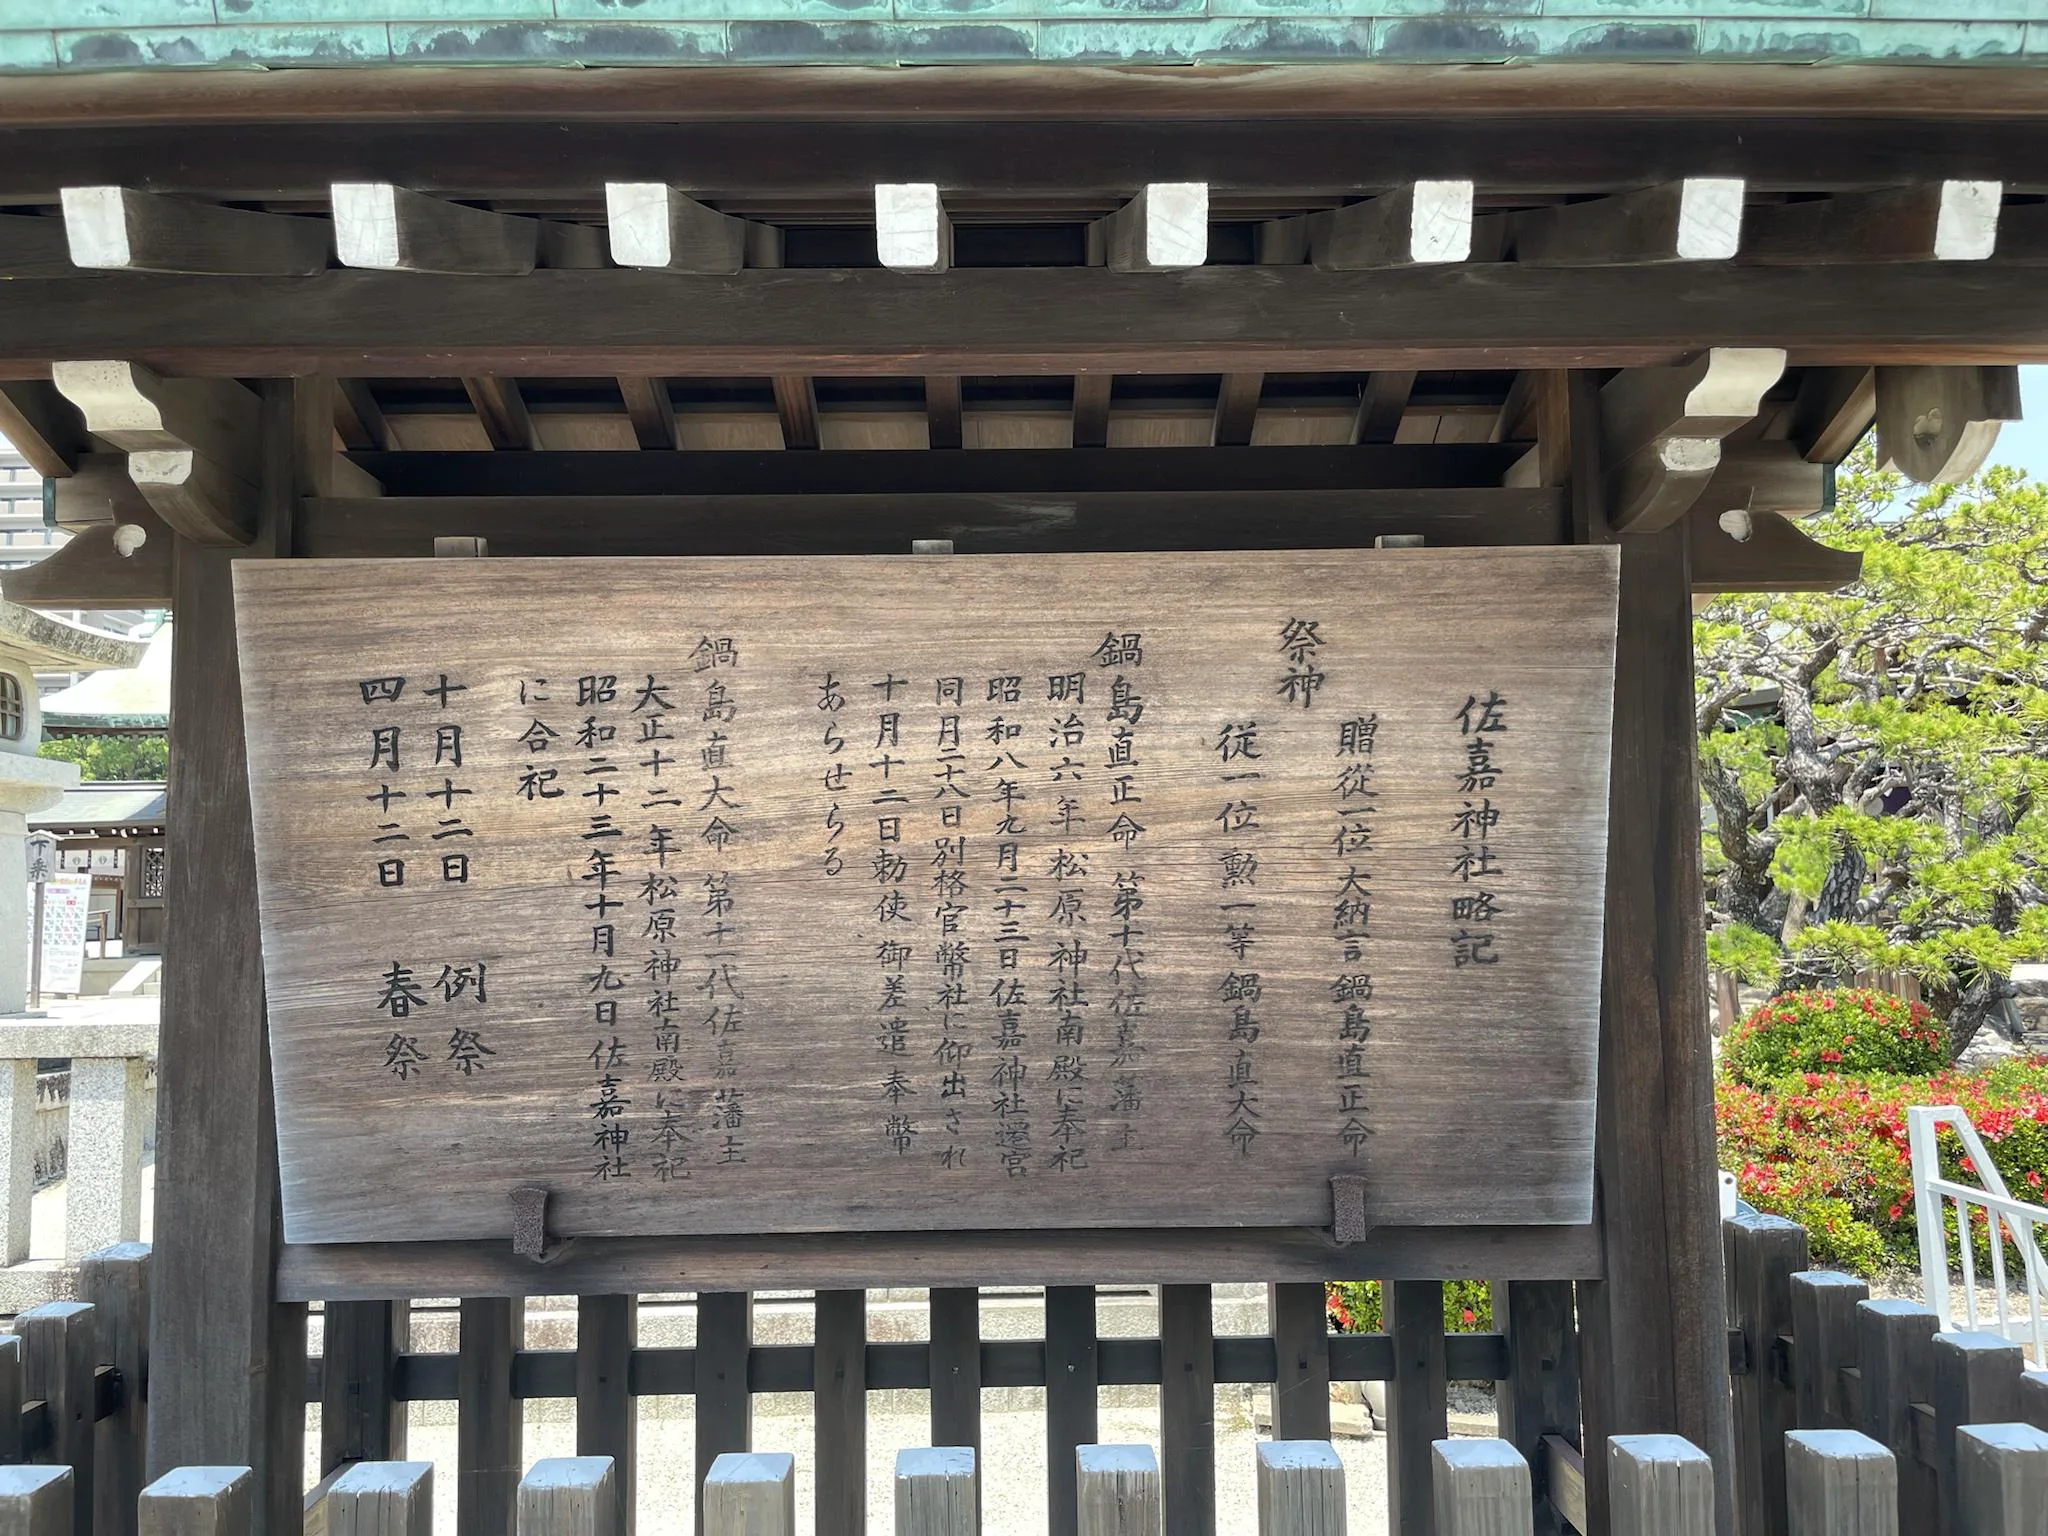 佐嘉神社略記
祭神
贈從一位大納言鍋島直正命
従一位勲一等鍋島直大命
鍋島直正命 第十代佐嘉藩主
明治六年松原神社南殿に奉祀
昭和八年九月二十三日佐嘉神社遷宮
同月二十八日別格官幣社に仰出され
十月十二日勅使御差遣奉幣
あらせらる
鍋島直大命 第十一代佐嘉藩主
大正十二年松原神社南殿に奉祀
昭和二十三年十月九日佐嘉神社
に合祀
十月十二日 例祭
四月十二日 春祭
下乗